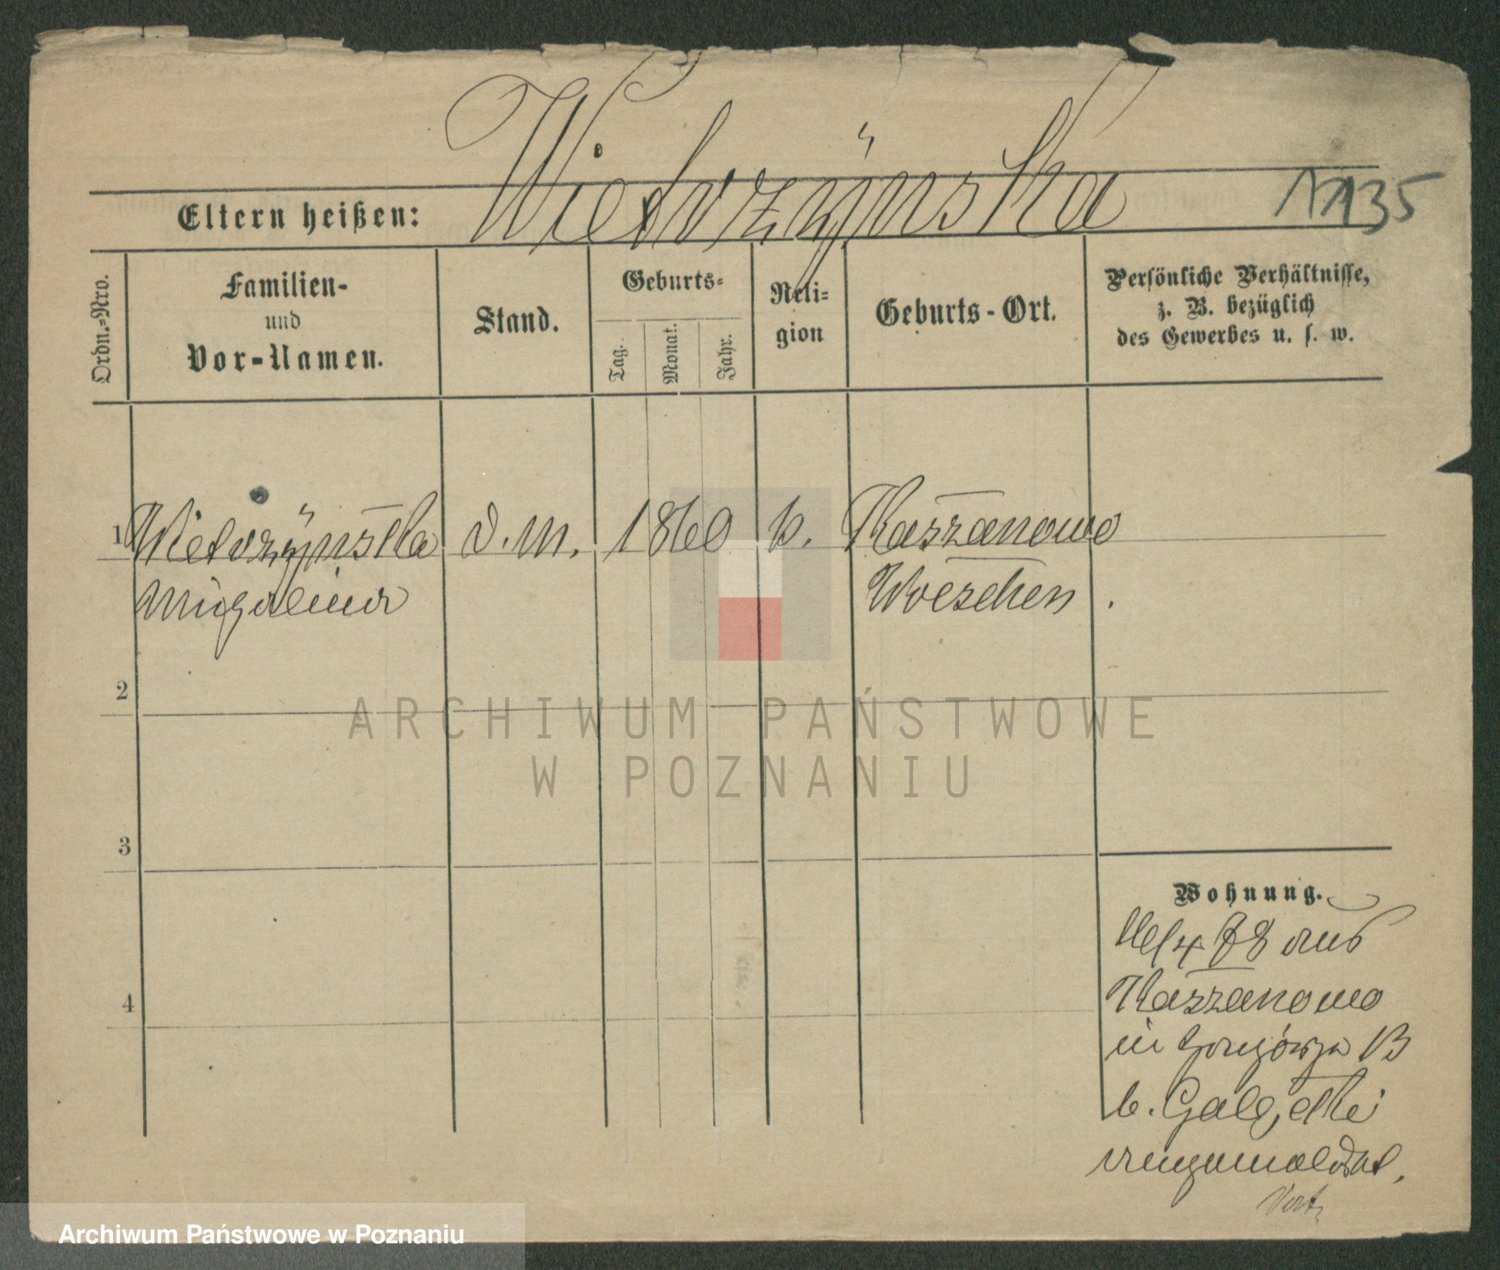 Wietrzynska
Eltern heißen:
1135
Ordn.-Nro.
Familien-
und
Vor-Namen.
Stand.
Geburts-
Tag.
Monat.
Jahr.
Reli-
gion
Geburts-Ort.
Persönliche Verhältnisse,
z. B. bezüglich
des Gewerbes u. s. w.
1 Wietrzynska d.M. 1860 k. Kaszanowo
Wreschen
2
3
4
Wohnung.
78 aus
Kaszanowo
in 13
b.
angemeldet.
ARCHIWUM PAŃSTWOWE
W POZNANIU
Archiwum Państwowe w Poznaniu